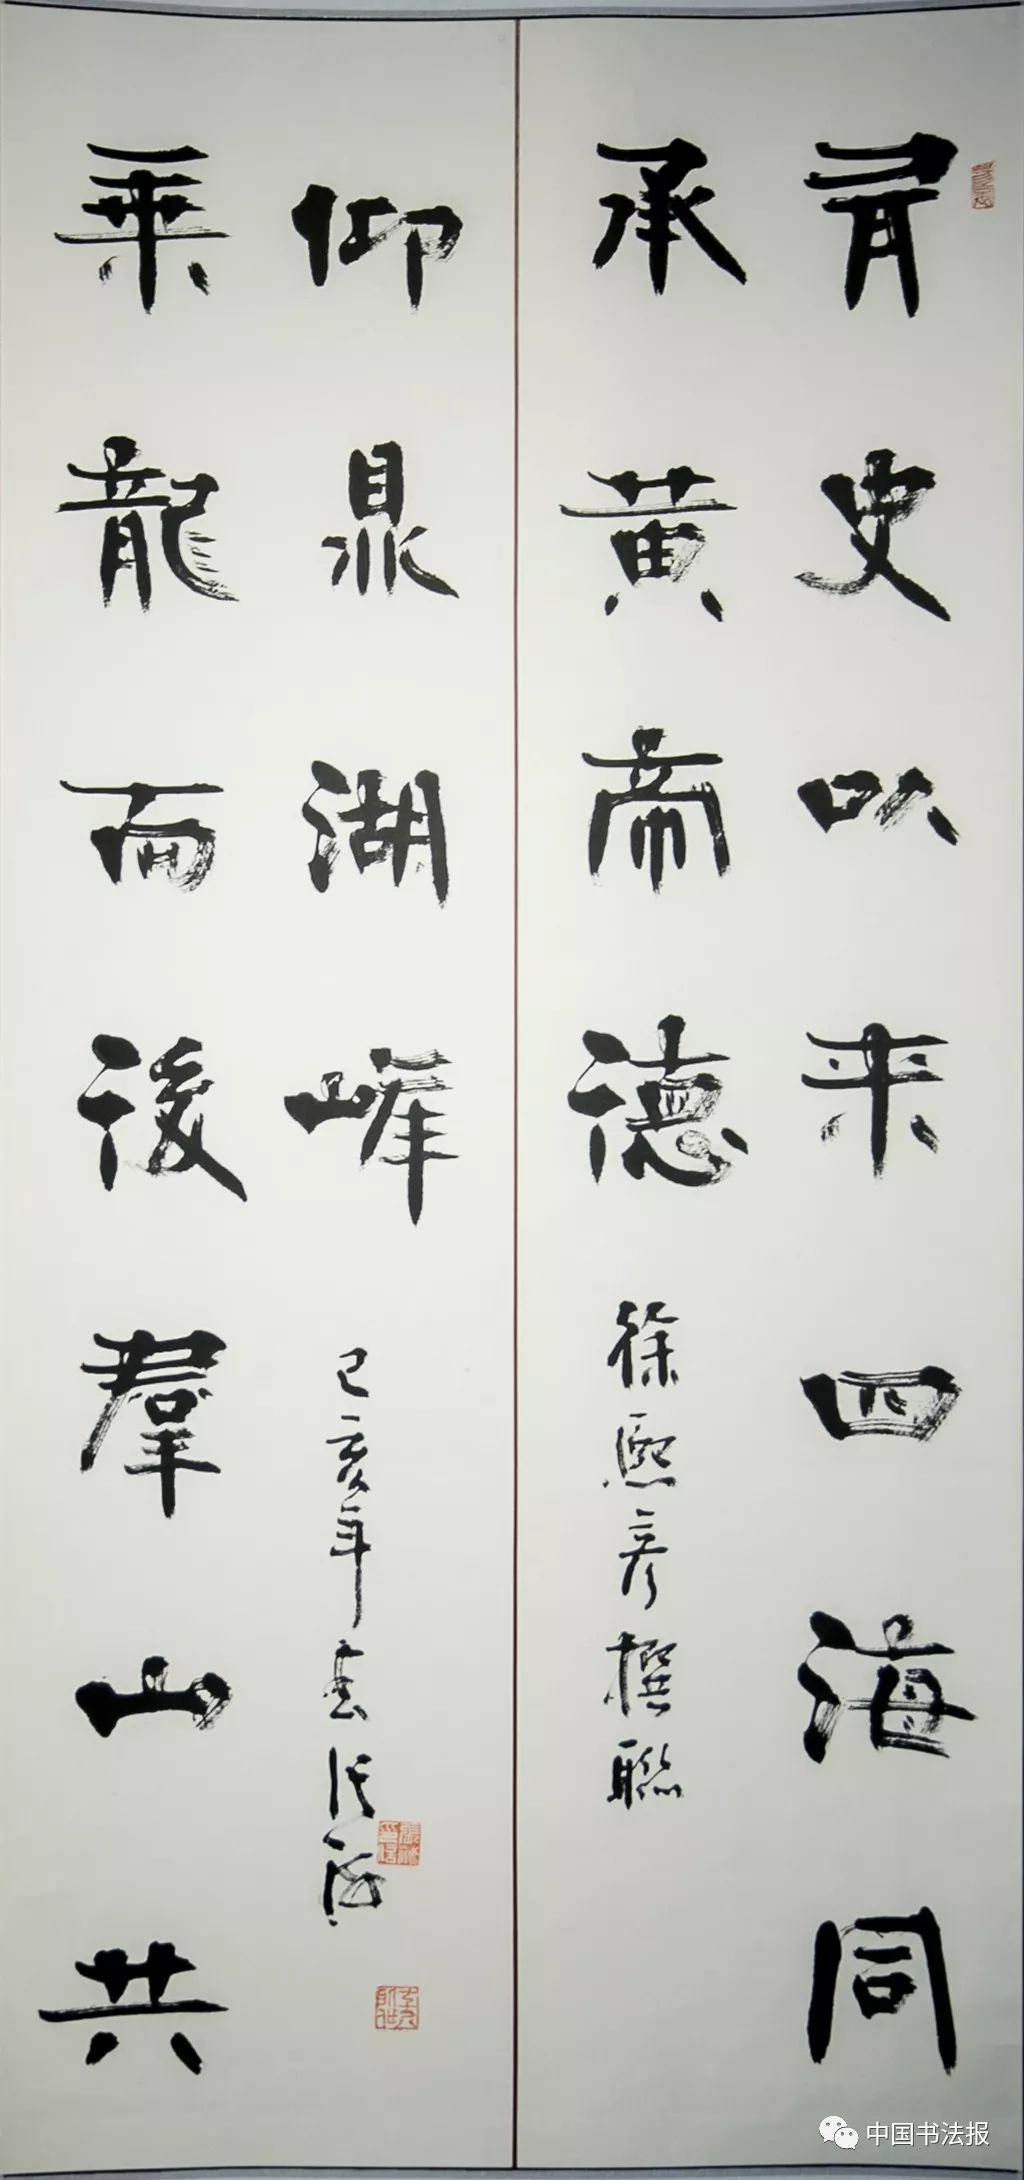 有史以来四海同
承黄帝德
徐熙彦撰聯
乘龍而後羣山共
仰鼎湖峰
己亥年春
中国书法报